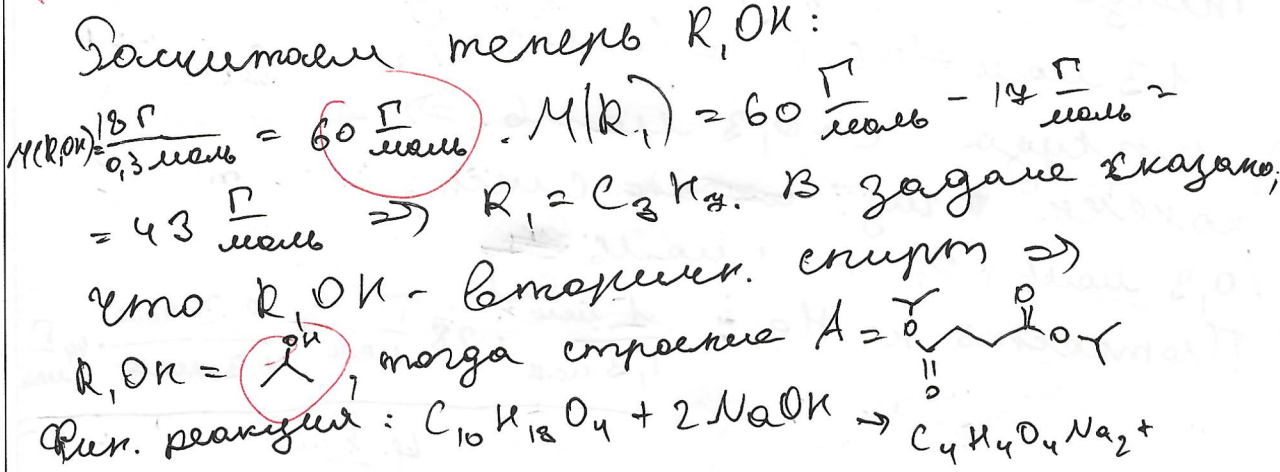 Посчитаем теперь R₁OH:
M(R₁OH) = 18 г / 0,3 моль = 60 г/моль. M(R₁) = 60 г/моль - 17 г/моль =
= 43 г/моль => R₁ = C₃H₇. В задаче сказано,
что R₁OH - вторичн. спирт =>
R₁OH = OH, тогда строение A = O O O O
Фин. реакция: C₁₀H₁₈O₄ + 2NaOH → C₄H₄O₄Na₂ +